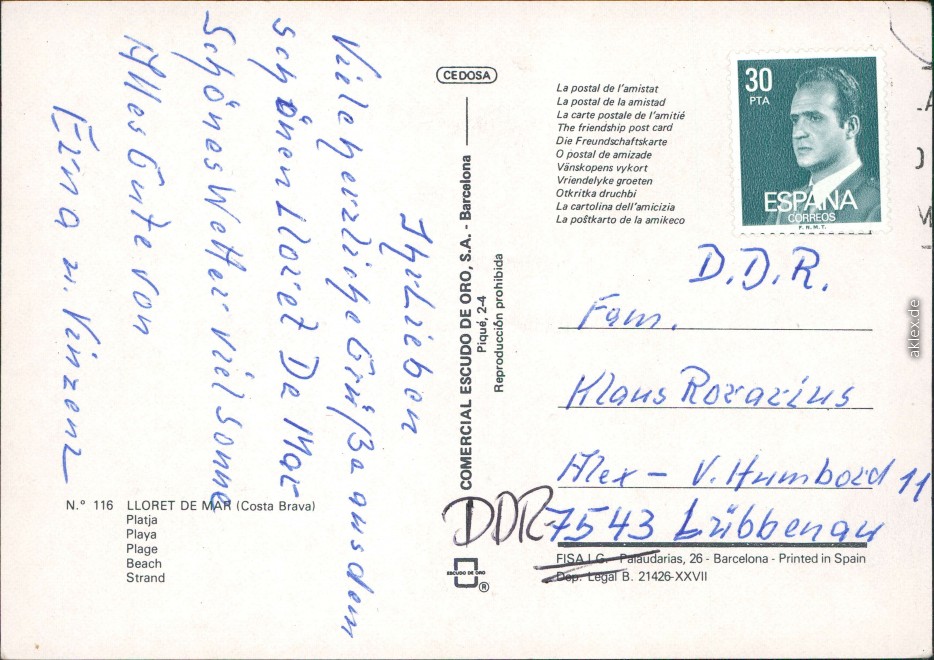 Ihr Lieben
Viele herzliche Grüße aus dem
schönen Lloret De Mar
Schönes Wetter viel Sonne
Alles Gute von
Erna u. Vinzenz
CEDOSA
COMERCIAL ESCUDO DE ORO, S.A. - Barcelona
Piqué, 2-4
Reproducción prohibida
ESCUDO DE ORO
®
N.° 116 LLORET DE MAR (Costa Brava)
Platja
Playa
Plage
Beach
Strand
La postal de l'amistat
La postal de la amistad
La carte postale de l'amitié
The friendship post card
Die Freundschaftskarte
O postal de amizade
Vänskopens vykort
Vriendelyke groeten
Otkritka druchbi
La cartolina dell'amicizia
La poŝtkarto de la amikeco
30
PTA
ESPAÑA
CORREOS
F.N.M.T.
D.D.R.
Fam.
Klaus
Alex - V. Humbord 11
DDR-7543 Lübbenau
FISA I.G. - Palaudarias, 26 - Barcelona - Printed in Spain
Dep. Legal B. 21426-XXVII
aklex.de